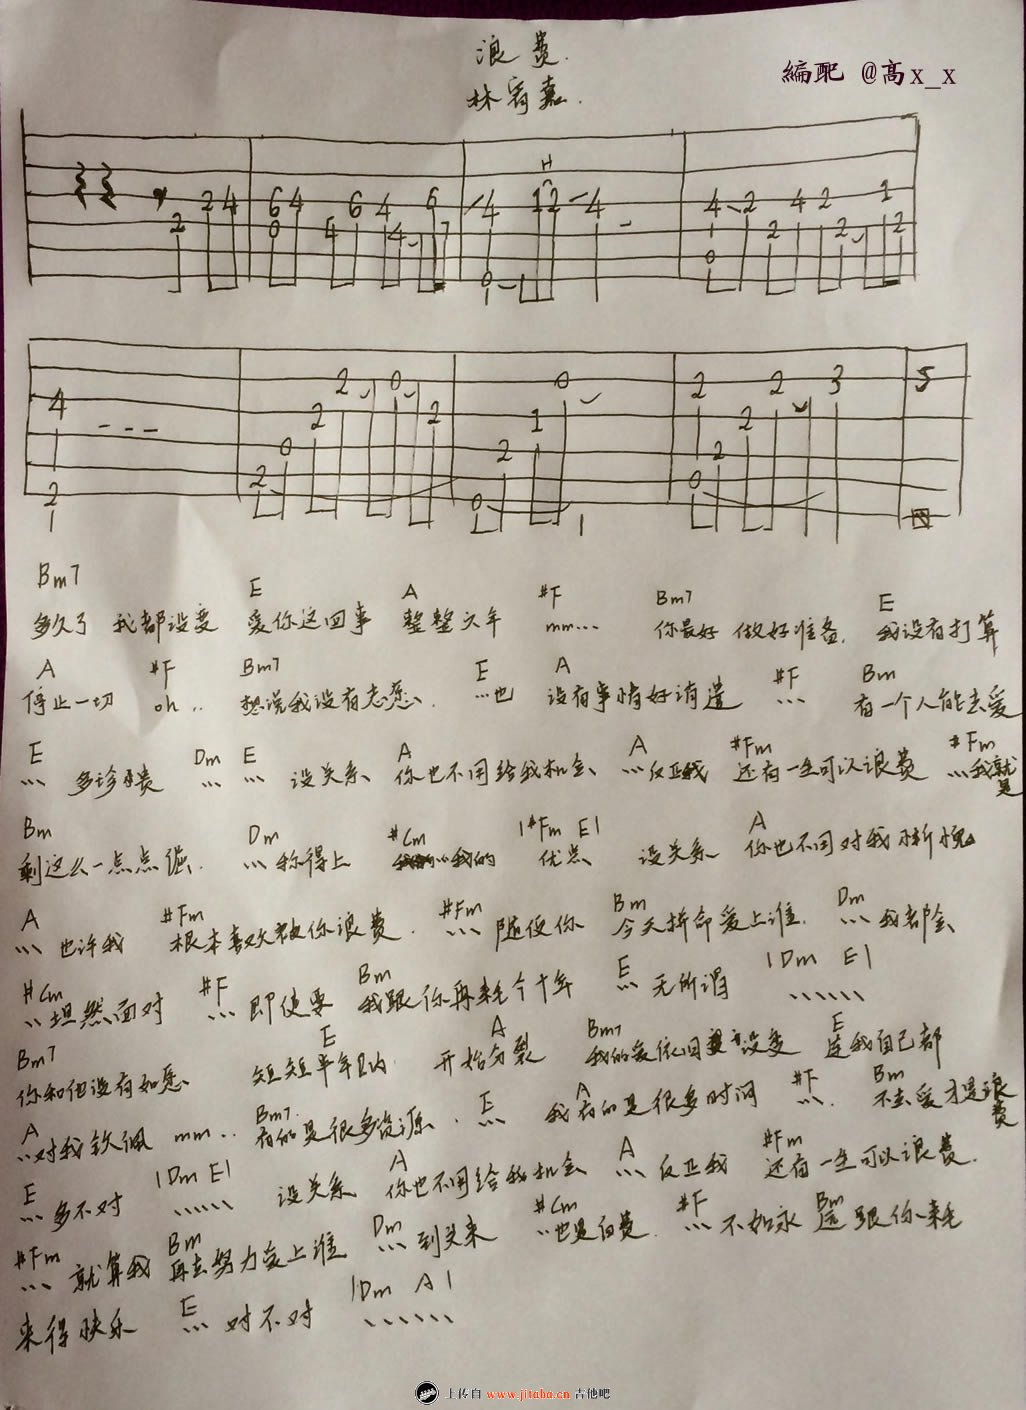 浪费.
林宥嘉.
编配 @高x_x
H
2 4 6 4 6 4 6 4 12 4 4 2 4 2 1
2 0 4 4 7 1 2 2 2
0 0
2 0 0 2 2 3 5
4 2 2 1 2
0 2 2
2 2 0 0
Bm7 E A #F Bm7 E
多久了 我都没变 爱你这回事 整整六年 mm... 你最好 做好准备. 我没有打算
A #F Bm7 E A #F Bm
停止一切 oh .. 想说我没有志愿、 ...也 没有事情好消遣 ... 有一个人能去爱
E Dm E A A #Fm #Fm
... 多珍贵 ... ... 没关系、你也不用给我机会、...反正我 还有一生可以浪费 ...我就是
Bm Dm #Cm |#Fm E| A
剩这么一点点倔. ...称得上 ..我的 优点、 没关系 你也不用对我惭愧
A #Fm #Fm Bm Dm
... 也许我 根本喜欢被你浪费. ... 随便你 今天拼命爱上谁. ... 我都会
#Cm #F Bm E |Dm E|
..坦然面对 ... 即使要 我跟你再耗个十年 ... 无所谓 ......
Bm7 E A Bm7 E
你和他没有如愿、 短短半年内 开始分裂 我的爱依旧没变 连我自己都
A Bm7. E A #F Bm
..对我钦佩 mm.. 有的是很多资源、. ... 我有的是很多时间 ... 不去爱才是浪费
E |Dm E| A A #Fm
... 多不对 ...... 没关系、 你也不用给我机会 ... 反正我 还有一生可以浪费.
#Fm Bm Dm #Cm #F Bm
... 就算我 再去努力爱上谁 ... 到头来 ..也是白费. ... 不如永远跟你耗
E |Dm A|
来得快乐 ... 对不对 ......
上传自 www.jitaba.cn 吉他吧